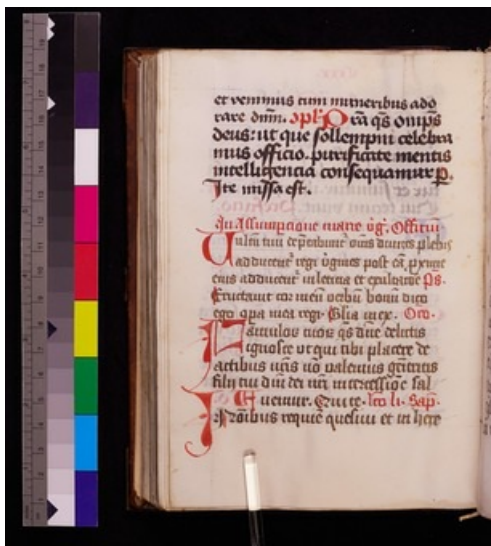 et venimus cum muneribus ado
rare dnm. 9plª Pra qs omps
deus: ut que sollempni celebra
mus officio. purificate mentis
intelligencia consequamur P.
Ite missa est.
In Assumpcione marie vg. Officiu
Vultu tuu depcabunt ois divites plebis
adducent regi vgines post ea pxime
eius adducent in leticia et exultatoe Ps.
Eructavit cor meu verbu bonu dico
ego opa mea regi Glia in ex. Oro.
Famulor tuor qs dne delictis
ignosce ut qui tibi placere de
actibus nris no valemus genitricis
filij tui dni dei nri intercessioe sal
vemur. Qui te. lco li. Sap.
In oibus requie quesivi et in here